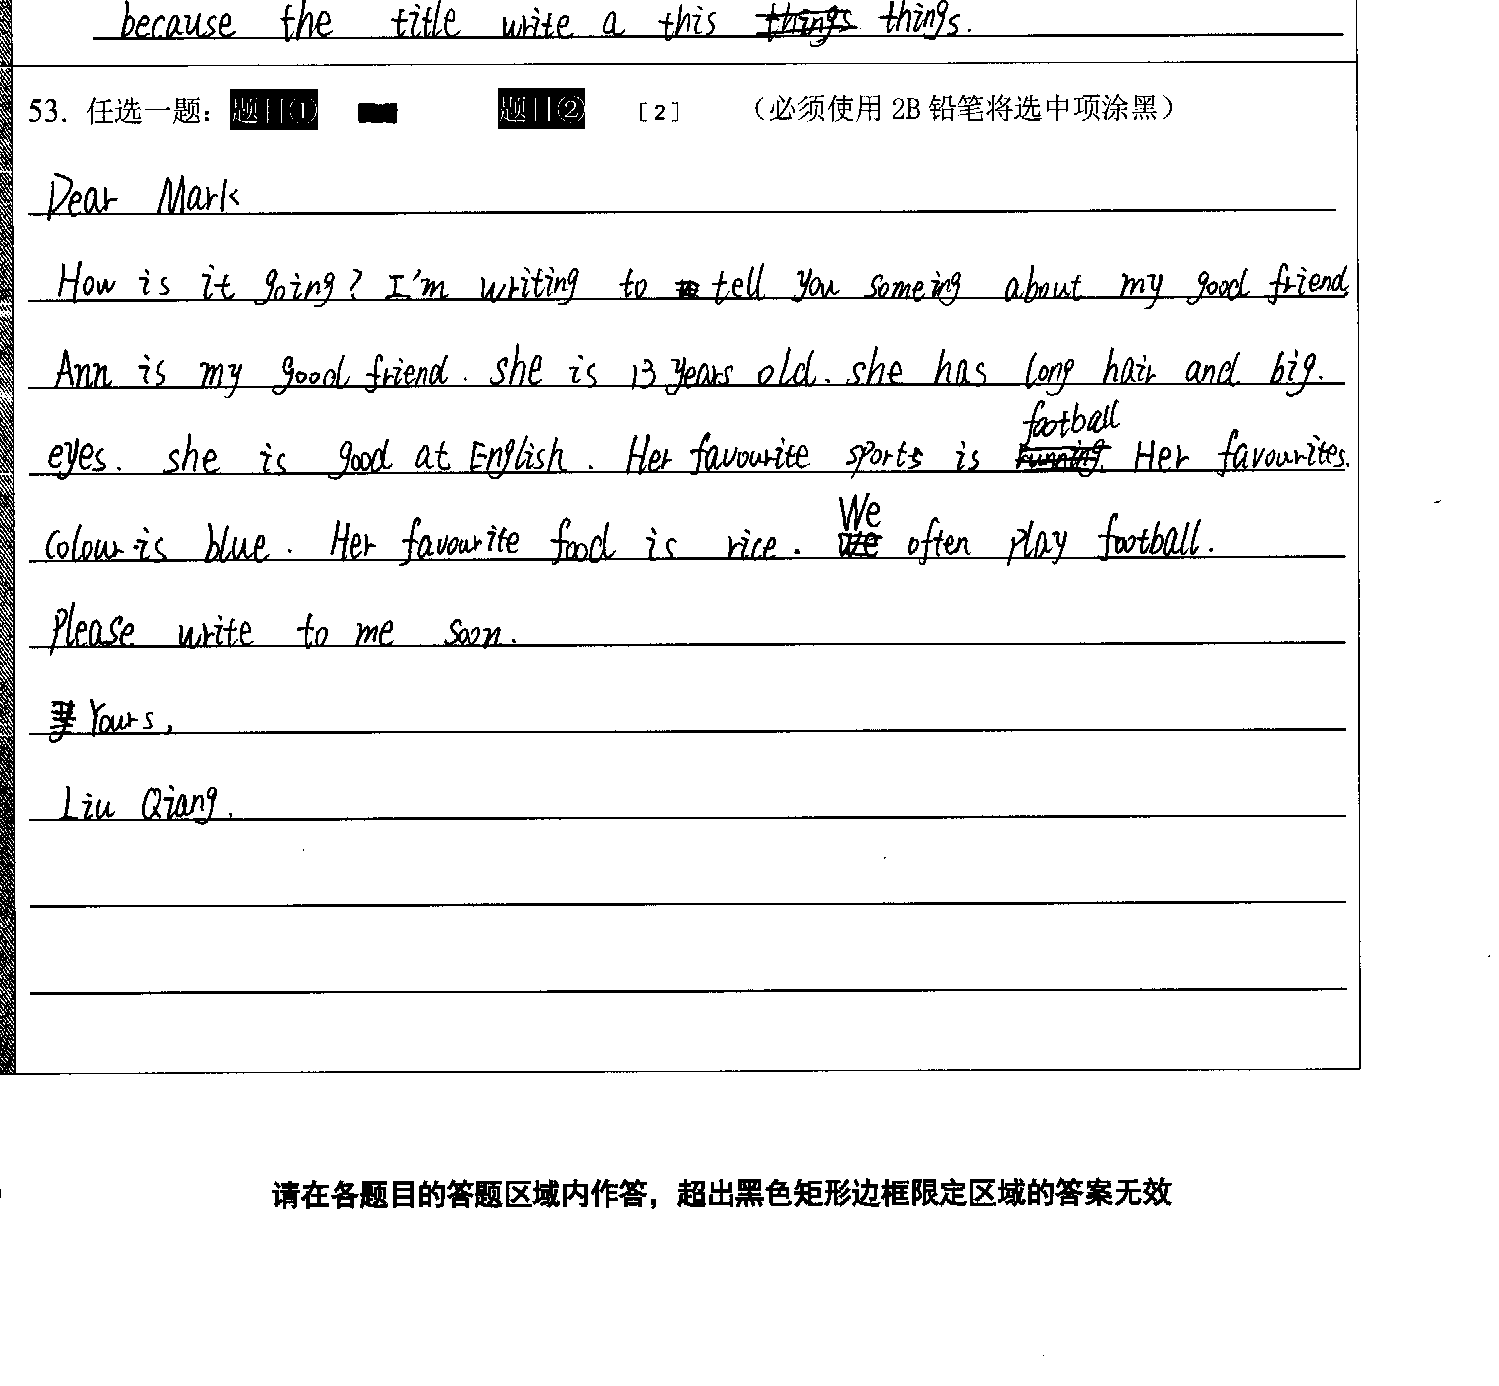 because the title write a this things things.
53. 任选一题： 题目① 题目② [2] （必须使用 2B 铅笔将选中项涂黑）
Dear Mark
How is it going? I'm writing to tell you someing about my good friend.
Ann is my good friend. she is 13 years old. she has long hair and big.
football
eyes. she is good at English. Her favourite sports is running. Her favourites.
We
colour is blue. Her favourite food is rice. we often play football.
Please write to me soon.
Yours,
Liu Qiang.
请在各题目的答题区域内作答，超出黑色矩形边框限定区域的答案无效